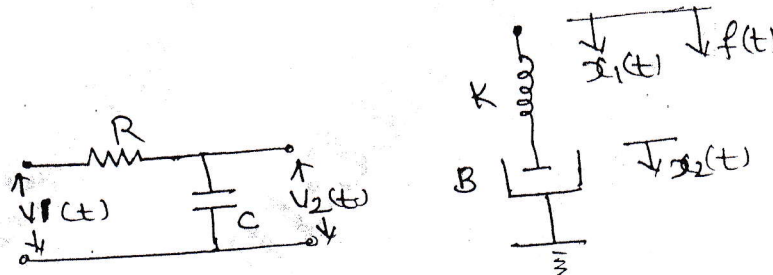 R
V1(t)
C
V2(t)
K
B
x1(t)
f(t)
x2(t)